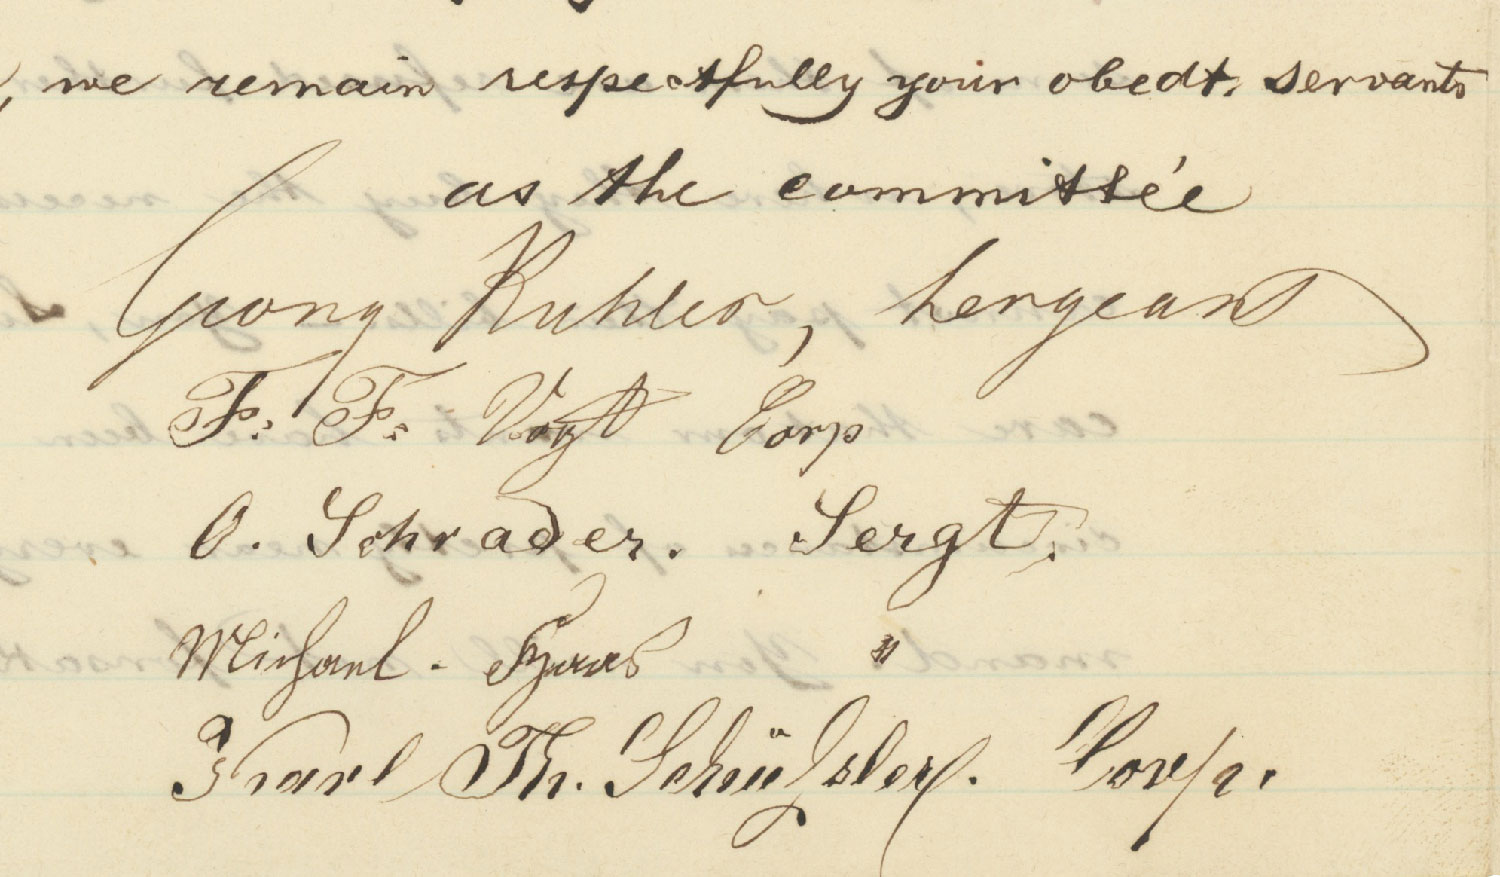 , we remain respectfully your obedt. servants
as the committée
Georg Kuhler, Sergeant
F. F. Vogt Corp
O. Schrader. Sergt.
Michael. Haas "
Karl Th. Schüßler. Corp.